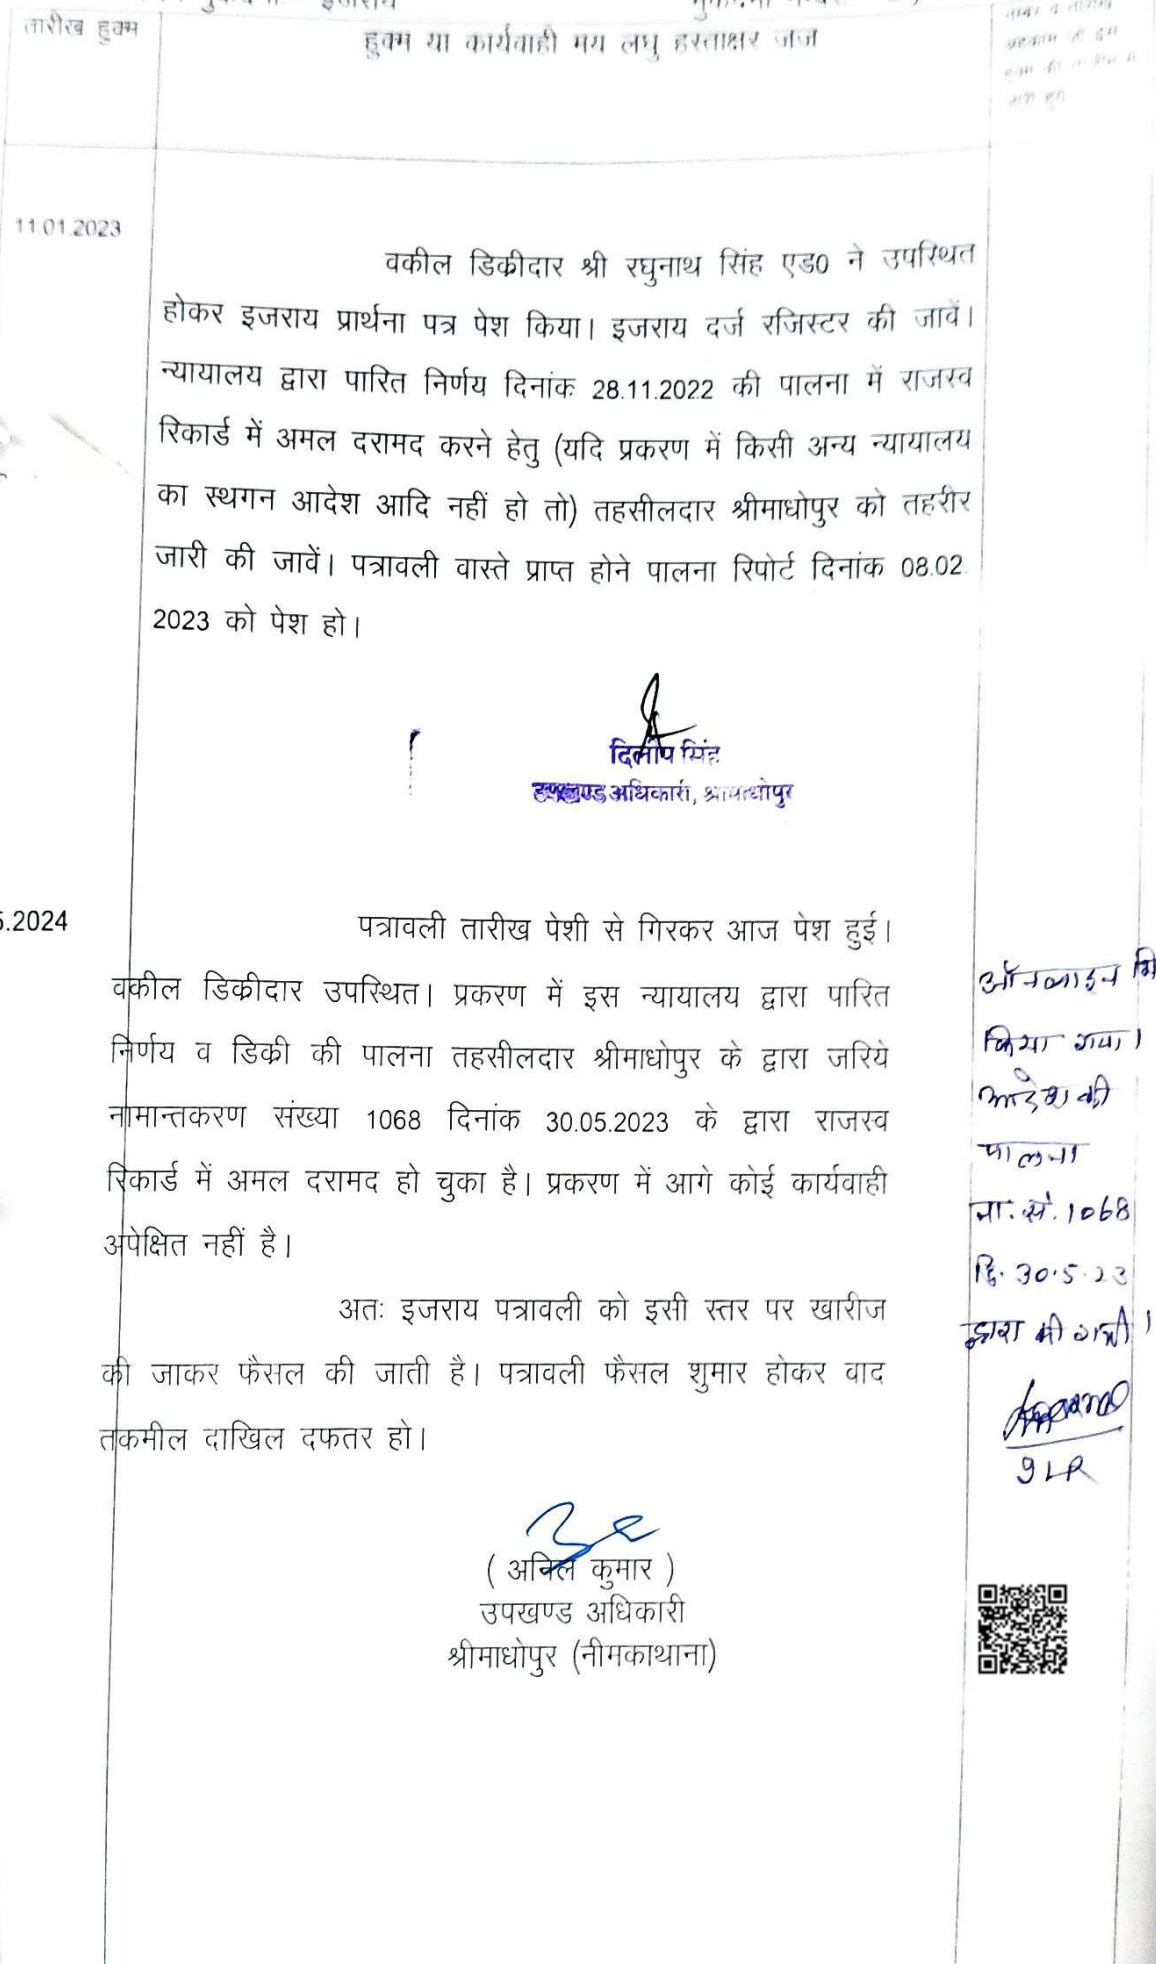 इजराय
तारीख हुक्म
हुक्म या कार्यवाही मय लघु हस्ताक्षर जज
11.01.2023
वकील डिक्रीदार श्री रघुनाथ सिंह एड0 ने उपस्थित
होकर इजराय प्रार्थना पत्र पेश किया। इजराय दर्ज रजिस्टर की जावें।
न्यायालय द्वारा पारित निर्णय दिनांक 28.11.2022 की पालना में राजस्व
रिकार्ड में अमल दरामद करने हेतु (यदि प्रकरण में किसी अन्य न्यायालय
का स्थगन आदेश आदि नहीं हो तो) तहसीलदार श्रीमाधोपुर को तहरीर
जारी की जावें। पत्रावली वास्ते प्राप्त होने पालना रिपोर्ट दिनांक 08.02.
2023 को पेश हो।
दिलीप सिंह
उपखण्ड अधिकारी, श्रीमाधोपुर
5.2024
पत्रावली तारीख पेशी से गिरकर आज पेश हुई।
वकील डिक्रीदार उपस्थित। प्रकरण में इस न्यायालय द्वारा पारित
निर्णय व डिक्री की पालना तहसीलदार श्रीमाधोपुर के द्वारा जरिये
नामान्तकरण संख्या 1068 दिनांक 30.05.2023 के द्वारा राजस्व
रिकार्ड में अमल दरामद हो चुका है। प्रकरण में आगे कोई कार्यवाही
अपेक्षित नहीं है।
अतः इजराय पत्रावली को इसी स्तर पर खारीज
की जाकर फैसल की जाती है। पत्रावली फैसल शुमार होकर वाद
तकमील दाखिल दफतर हो।
( अनिल कुमार )
उपखण्ड अधिकारी
श्रीमाधोपुर (नीमकाथाना)
ऑनलाइन
किया गया।
आदेश की
पालना
ना. सं. 1068
दि. 30.5.23
द्वारा की गयी।